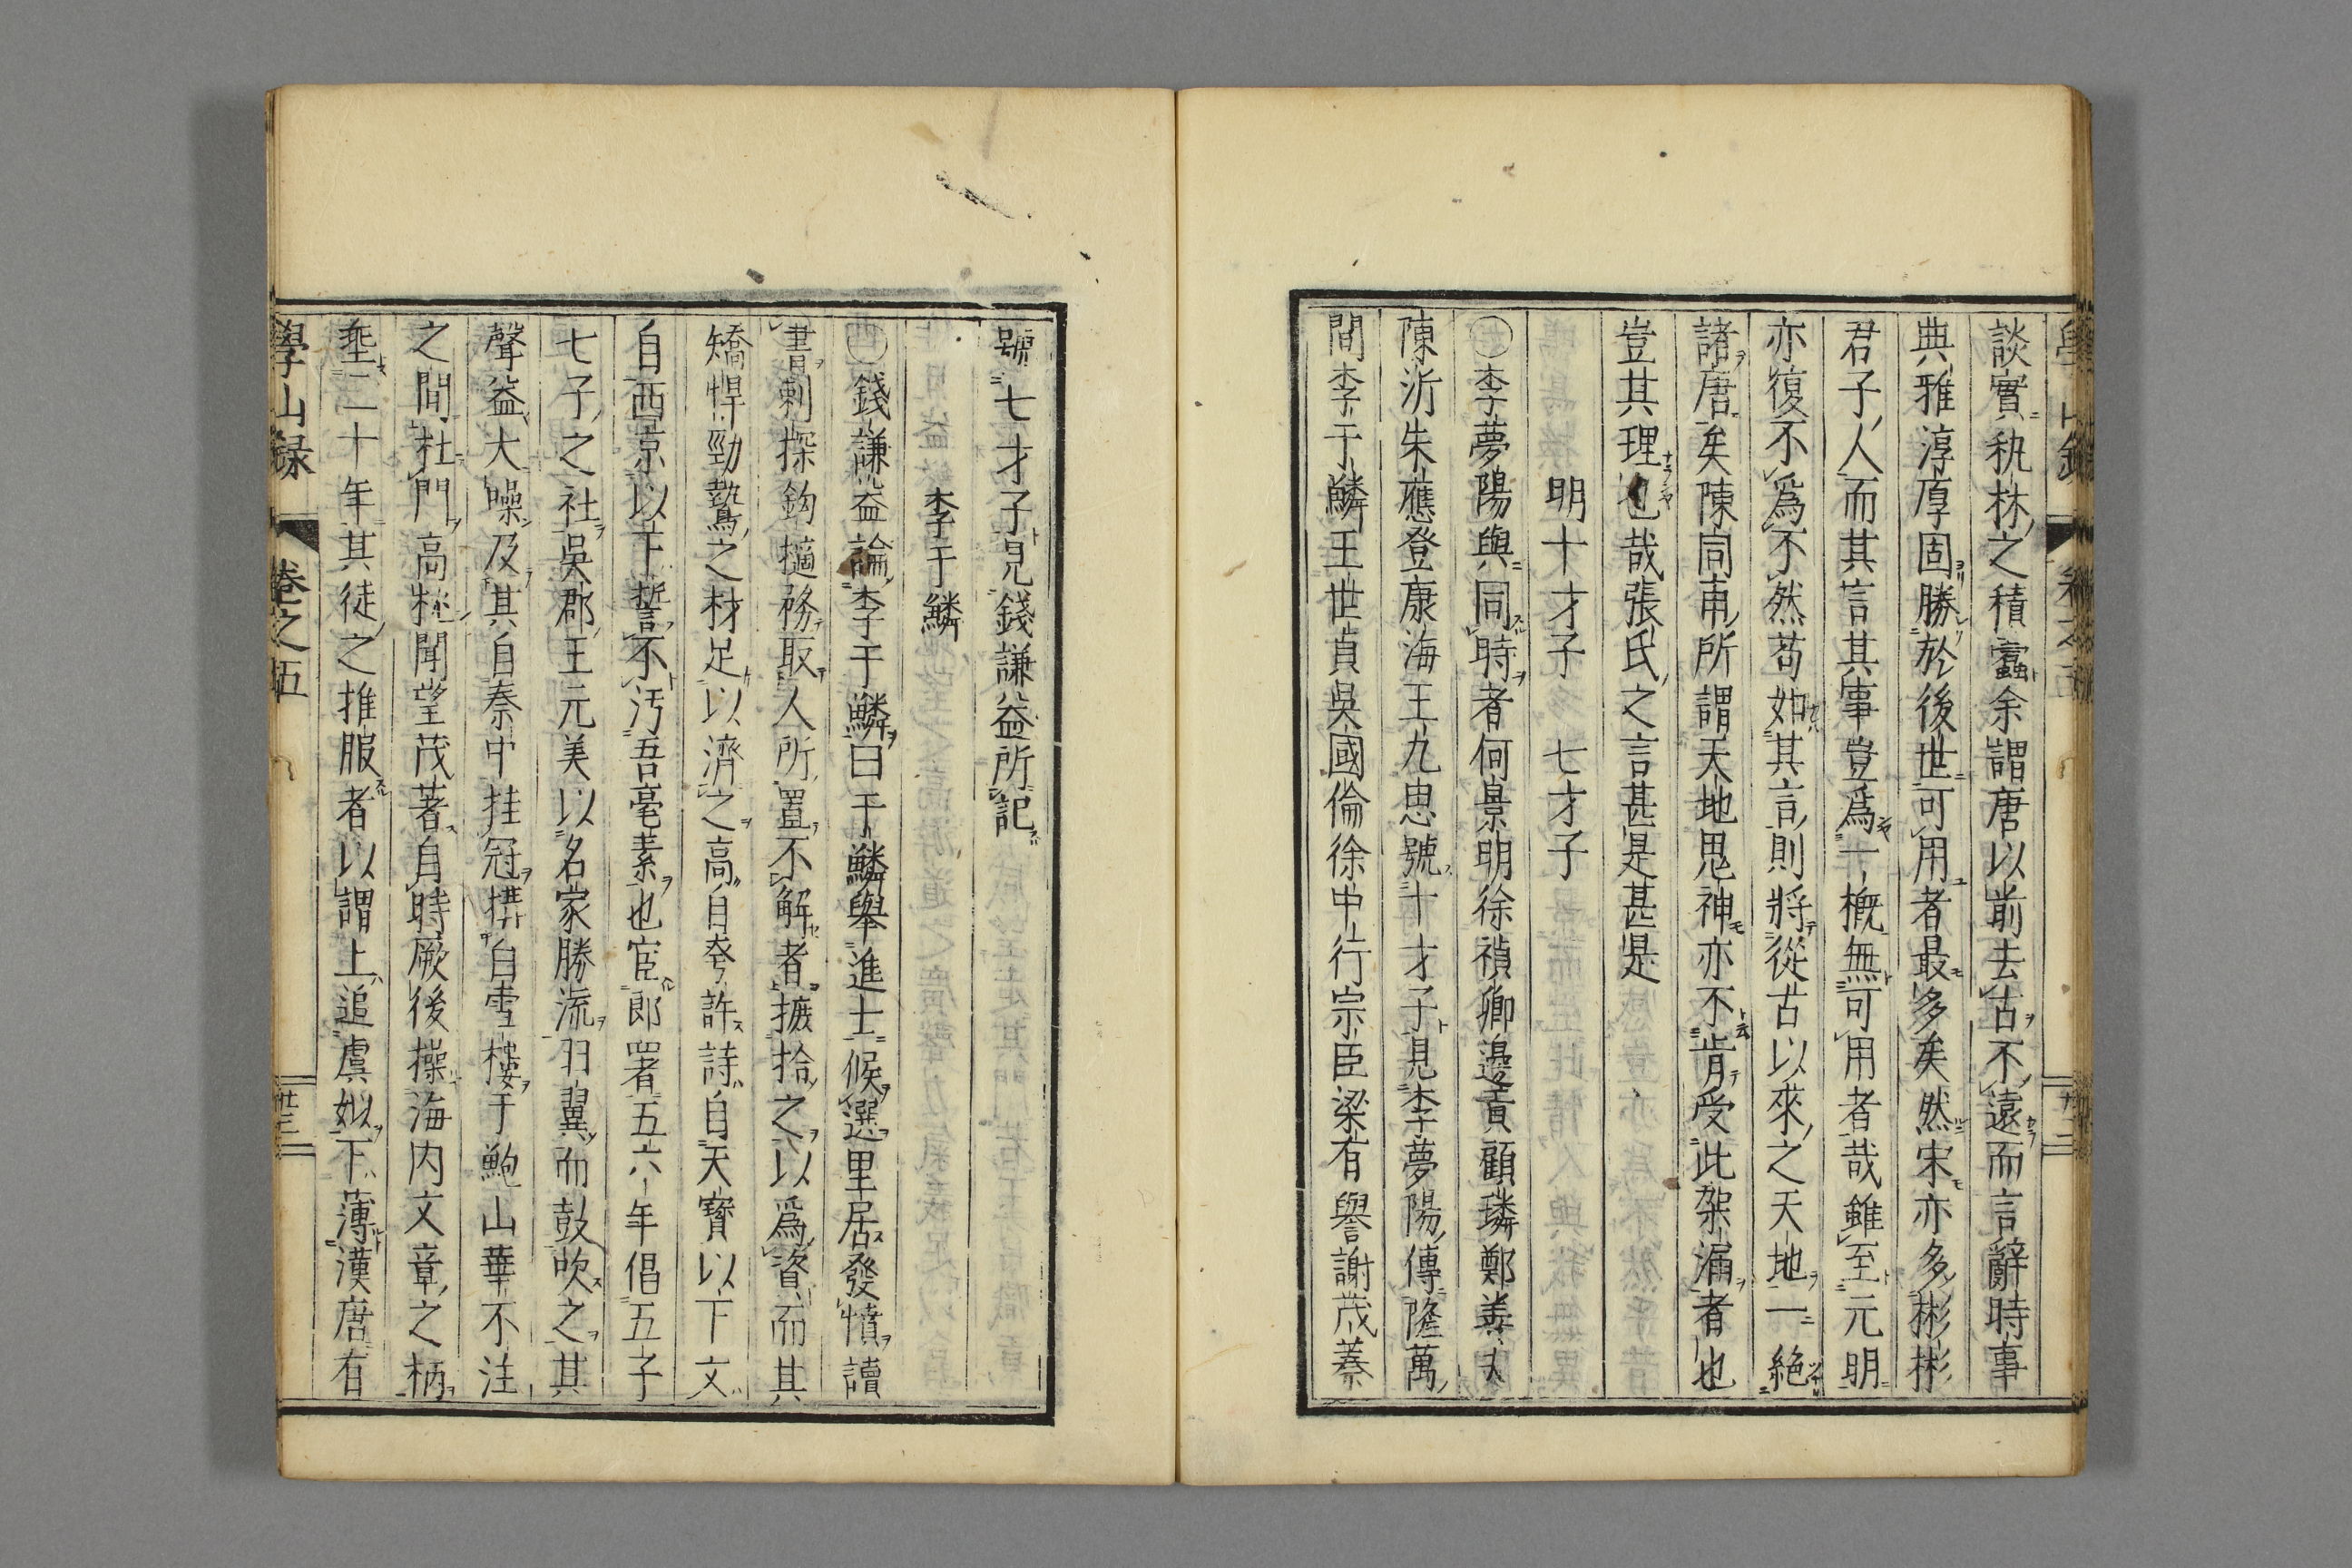 談實執林之積蠹余謂唐以前去古不遠而言辭時事
典雅淳厚固勝於後世可用者最多矣然宋亦多彬彬
君子人而其言其事豈爲一概無可用者哉雖至元明
亦復不爲不然苟如其言則將從古以來之天地一絕
諸唐矣陳同甫所謂天地鬼神亦不肯受此架漏者也
豈其理也哉張氏之言甚是甚是
明十才子 七才子
○李夢陽與同時者何景明徐禎卿邊貢顧璘鄭善夫
陳沂朱應登康海王九思號十才子見李夢陽傳隆萬
間李于鱗王世貞吳國倫徐中行宗臣梁有譽謝茂蓁
號七才子見錢謙益所記
李于鱗
○錢謙益論李于鱗曰于鱗舉進士候選里居發憤讀
書刺探鈎擿務取人所置不解者摭拾之以爲資而其
矯悍勁鷙之材足以濟之高自夸許詩自天寶以下文
自西京以下誓不汚吾毫素也宦郎署五六年倡五子
七子之社吳郡王元美以名家勝流羽翼而鼓吹之其
聲益大噪及其自秦中挂冠搆白雪樓于鮑山華不注
之間杜門高枕聞望茂著自時厥後操海内文章之柄
垂二十年其徒之推服者以謂上追虞姒下薄漢唐有
學山録 卷之五 廿三